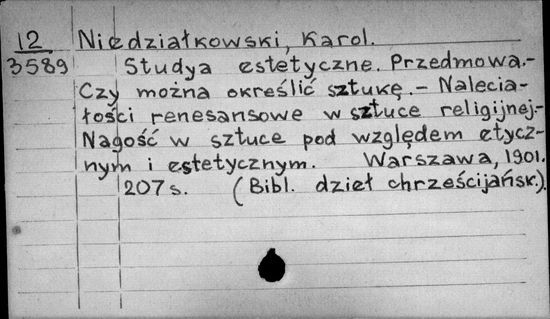 12 Niedziałkowski, Karol.
3589 Studya estetyczne. Przedmowa.-
Czy można określić sztukę. - Nalecia-
łości renesansowe w sztuce religijnej.-
Nagość w sztuce pod względem etycz-
nym i estetycznym. Warszawa, 1901.
207 s. (Bibl. dzieł chrześcijańsk.).